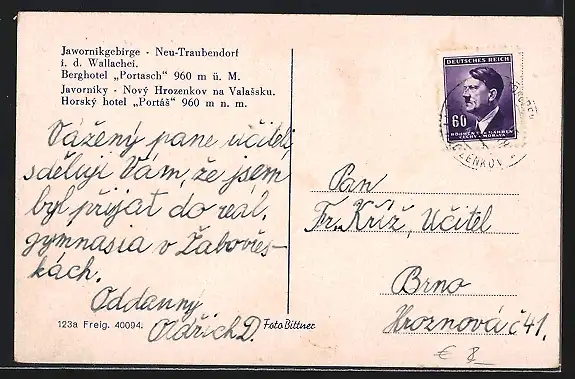 Jawornikgebirge · Neu-Traubendorf
i. d. Wallachei.
Berghotel „Portasch“ 960 m ü. M.
Javorníky · Nový Hrozenkov na Valašsku.
Horský hotel „Portáš“ 960 m n. m.
Vážený pane učiteli,
sděluji Vám, že jsem
byl přijat do reál.
gymnasia v Žabovřes-
kách.
Oddanný
Oldřich D.
123a Freig. 40094.
Foto Bittner
DEUTSCHES REICH
60
BÖHMEN UND MÄHREN
ČECHY - MORAVA
ZENKOV
Pan
Fr. Kříž, Učitel
Brno
Hroznová č 41.
€ 8